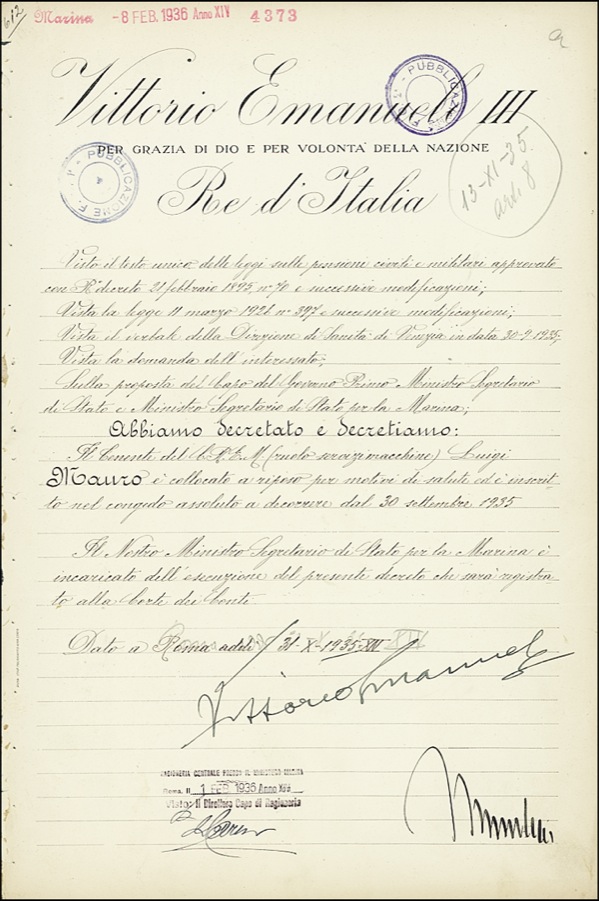 612
Marina -8 FEB. 1936 Anno XIV 4373
Vittorio Emanuele III
PUBBLICAZIONE
PER GRAZIA DI DIO E PER VOLONTÀ DELLA NAZIONE
PUBBLICAZIONE F.
Re d'Italia
13-XI-35
art. 8
Visto il testo unico delle leggi sulle pensioni civili e militari approvato
con R° decreto 21 febbraio 1895 n° 70 e successive modificazioni;
Vista la legge 11 marzo 1926 n° 397 e successive modificazioni;
Visto il verbale della Direzione di Sanità di Venezia in data 30-9-1935;
Vista la domanda dell'interessato;
Sulla proposta del Capo del Governo Primo Ministro Segretario
di Stato e Ministro Segretario di Stato per la Marina;
Abbiamo decretato e decretiamo:
Il Tenente del C.R.E.M. (ruolo servizi macchine) Luigi
Mauro è collocato a riposo per motivi di salute ed è inscrit-
to nel congedo assoluto a decorrere dal 30 settembre 1935
Il Nostro Ministro Segretario di Stato per la Marina è
incaricato dell'esecuzione del presente decreto che sarà registra-
to alla Corte dei Conti.
Dato a Roma addì 31-X-1935-XIV
Vittorio Emanuele
RAGIONERIA CENTRALE PRESSO IL MINISTERO MARINA
Roma, li 1 FEB. 1936 Anno XIV
Visto: Il Direttore Capo di Ragioneria